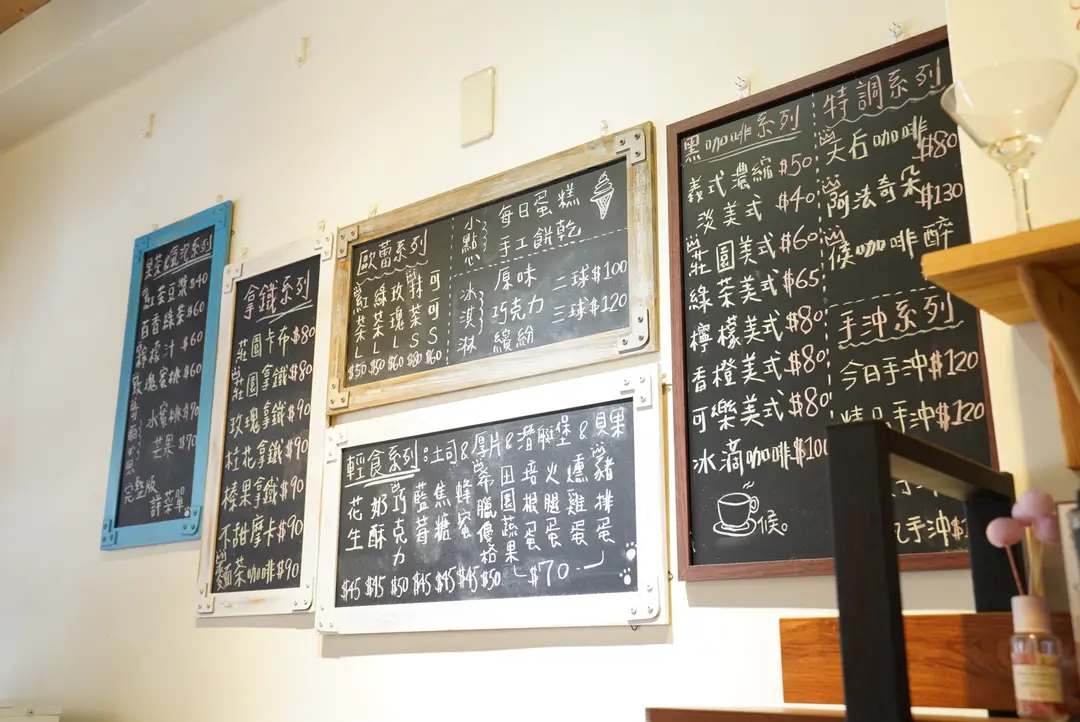 果茶&氣泡系列
紅茶豆漿$40
百香綠茶$60
檸檬汁$60
玫瑰蜜桃$60
水蜜桃$70
芒果$70
完整版
詳菜單
拿鐵系列
莊園卡布$80
莊園拿鐵$80
玫瑰拿鐵$90
桂花拿鐵$90
榛果拿鐵$90
不甜摩卡$90
麵茶咖啡$90
歐蕾系列
紅茶L$50
綠茶L$50
玫瑰L$60
抹茶S$80
可可S$60
小點
每日蛋糕
手工餅乾
冰淇淋
原味
巧克力
繽紛
二球$100
三球$120
輕食系列:土司&厚片&潛艇堡&貝果
花生$45
奶酥$45
巧克力$50
藍莓$45
焦糖$45
蜂蜜$45
希臘優格$50
田園蔬果
培根蛋
火腿蛋
燻雞蛋
豬排蛋
$70
黑咖啡系列
義式濃縮$50
淡美式$40
莊園美式$60
綠茶美式$65
檸檬美式$80
香橙美式$80
可樂美式$80
冰滴咖啡$100
候。
特調系列
尖石咖啡$80
阿法奇朵$130
候咖啡醉
手沖系列
今日手沖$120
手沖$120
手沖$